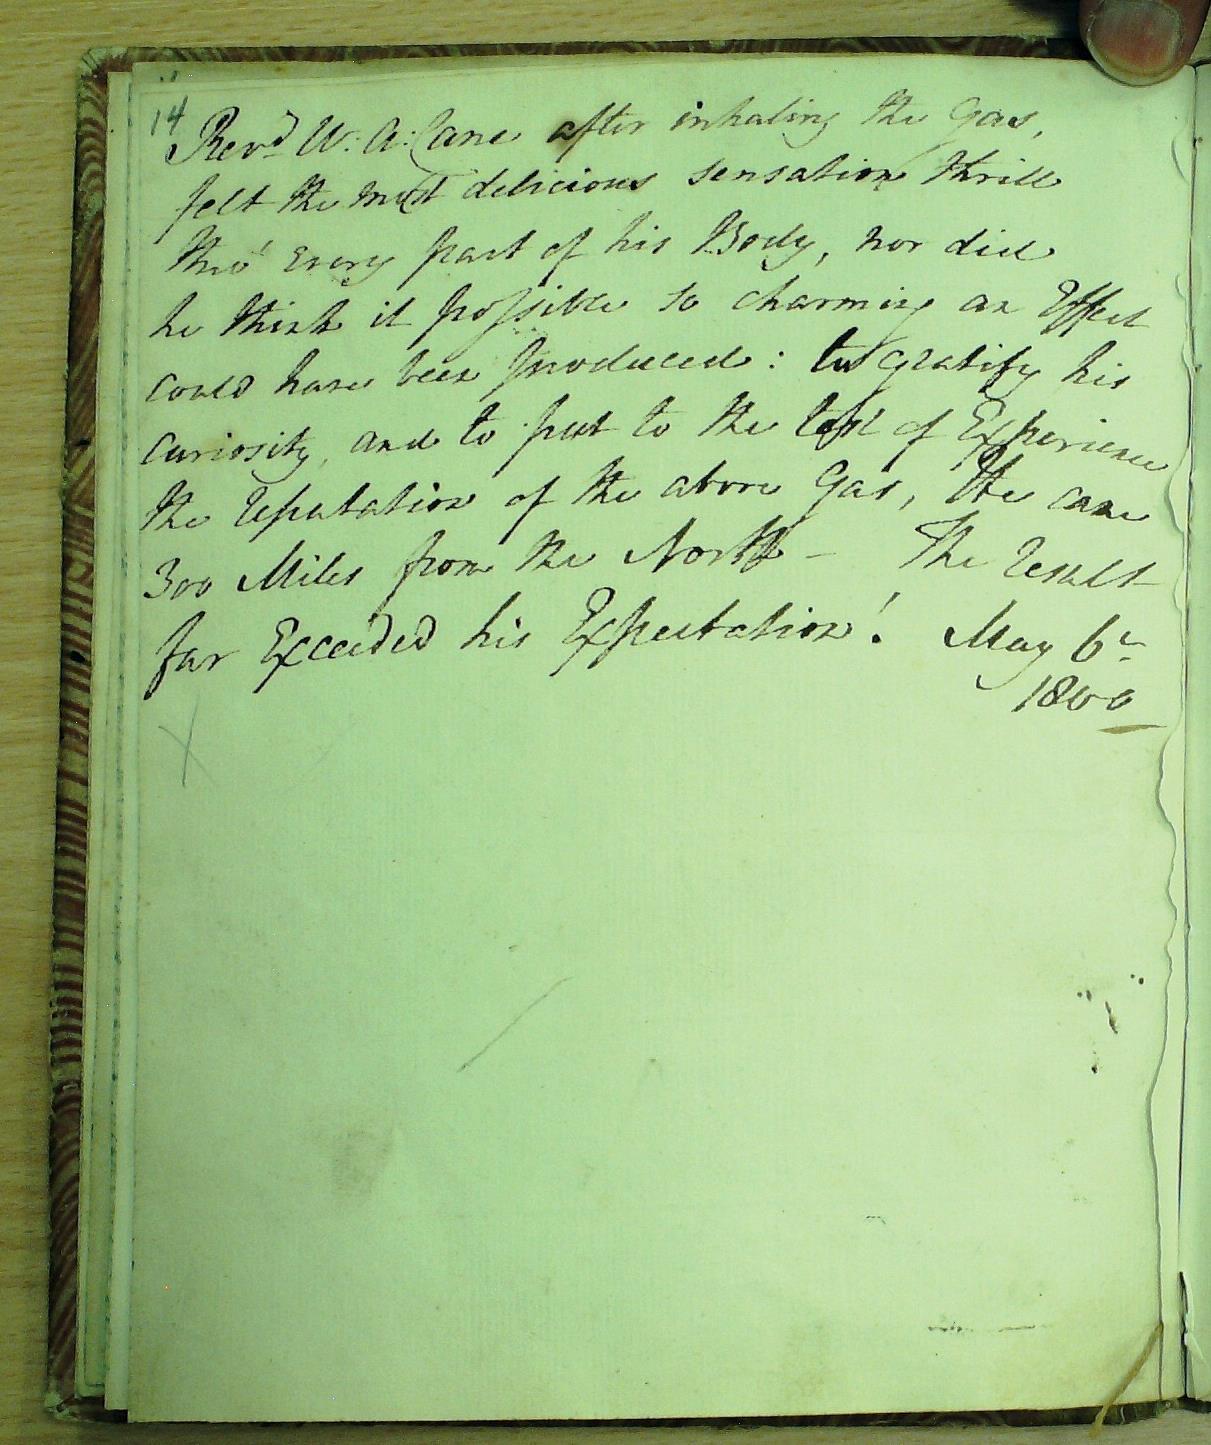 14
Revd W: A: Cane after inhaling the Gas,
felt the most delicious sensation thrill
thro' every part of his Body, nor did
he think it possible so charming an Effect
could have been produced: to gratify his
curiosity, and to put to the test of Experience
the reputation of the above Gas, he came
300 Miles from the North - The result
far Exceeded his Expectation! May 6th
1800